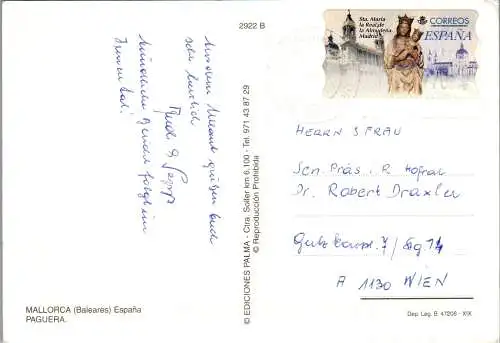 2922 B
Aus dem Urlaub grüßen Euch
sehr herzlich
Mündliche
MALLORCA (Baleares) España
PAGUERA.
© EDICIONES PALMA - Ctra. Soller km 6.100 - Tel. 971 43 87 29
© Reproducción Prohibida
Sta. María
la Real de
la Almudena
Madrid
CORREOS
ESPAÑA
HERRN & FRAU
Sen. Präs. R Hofrat
Dr. Robert Draxler
A 1130 WIEN
Dep. Leg. B. 47206 - XIX